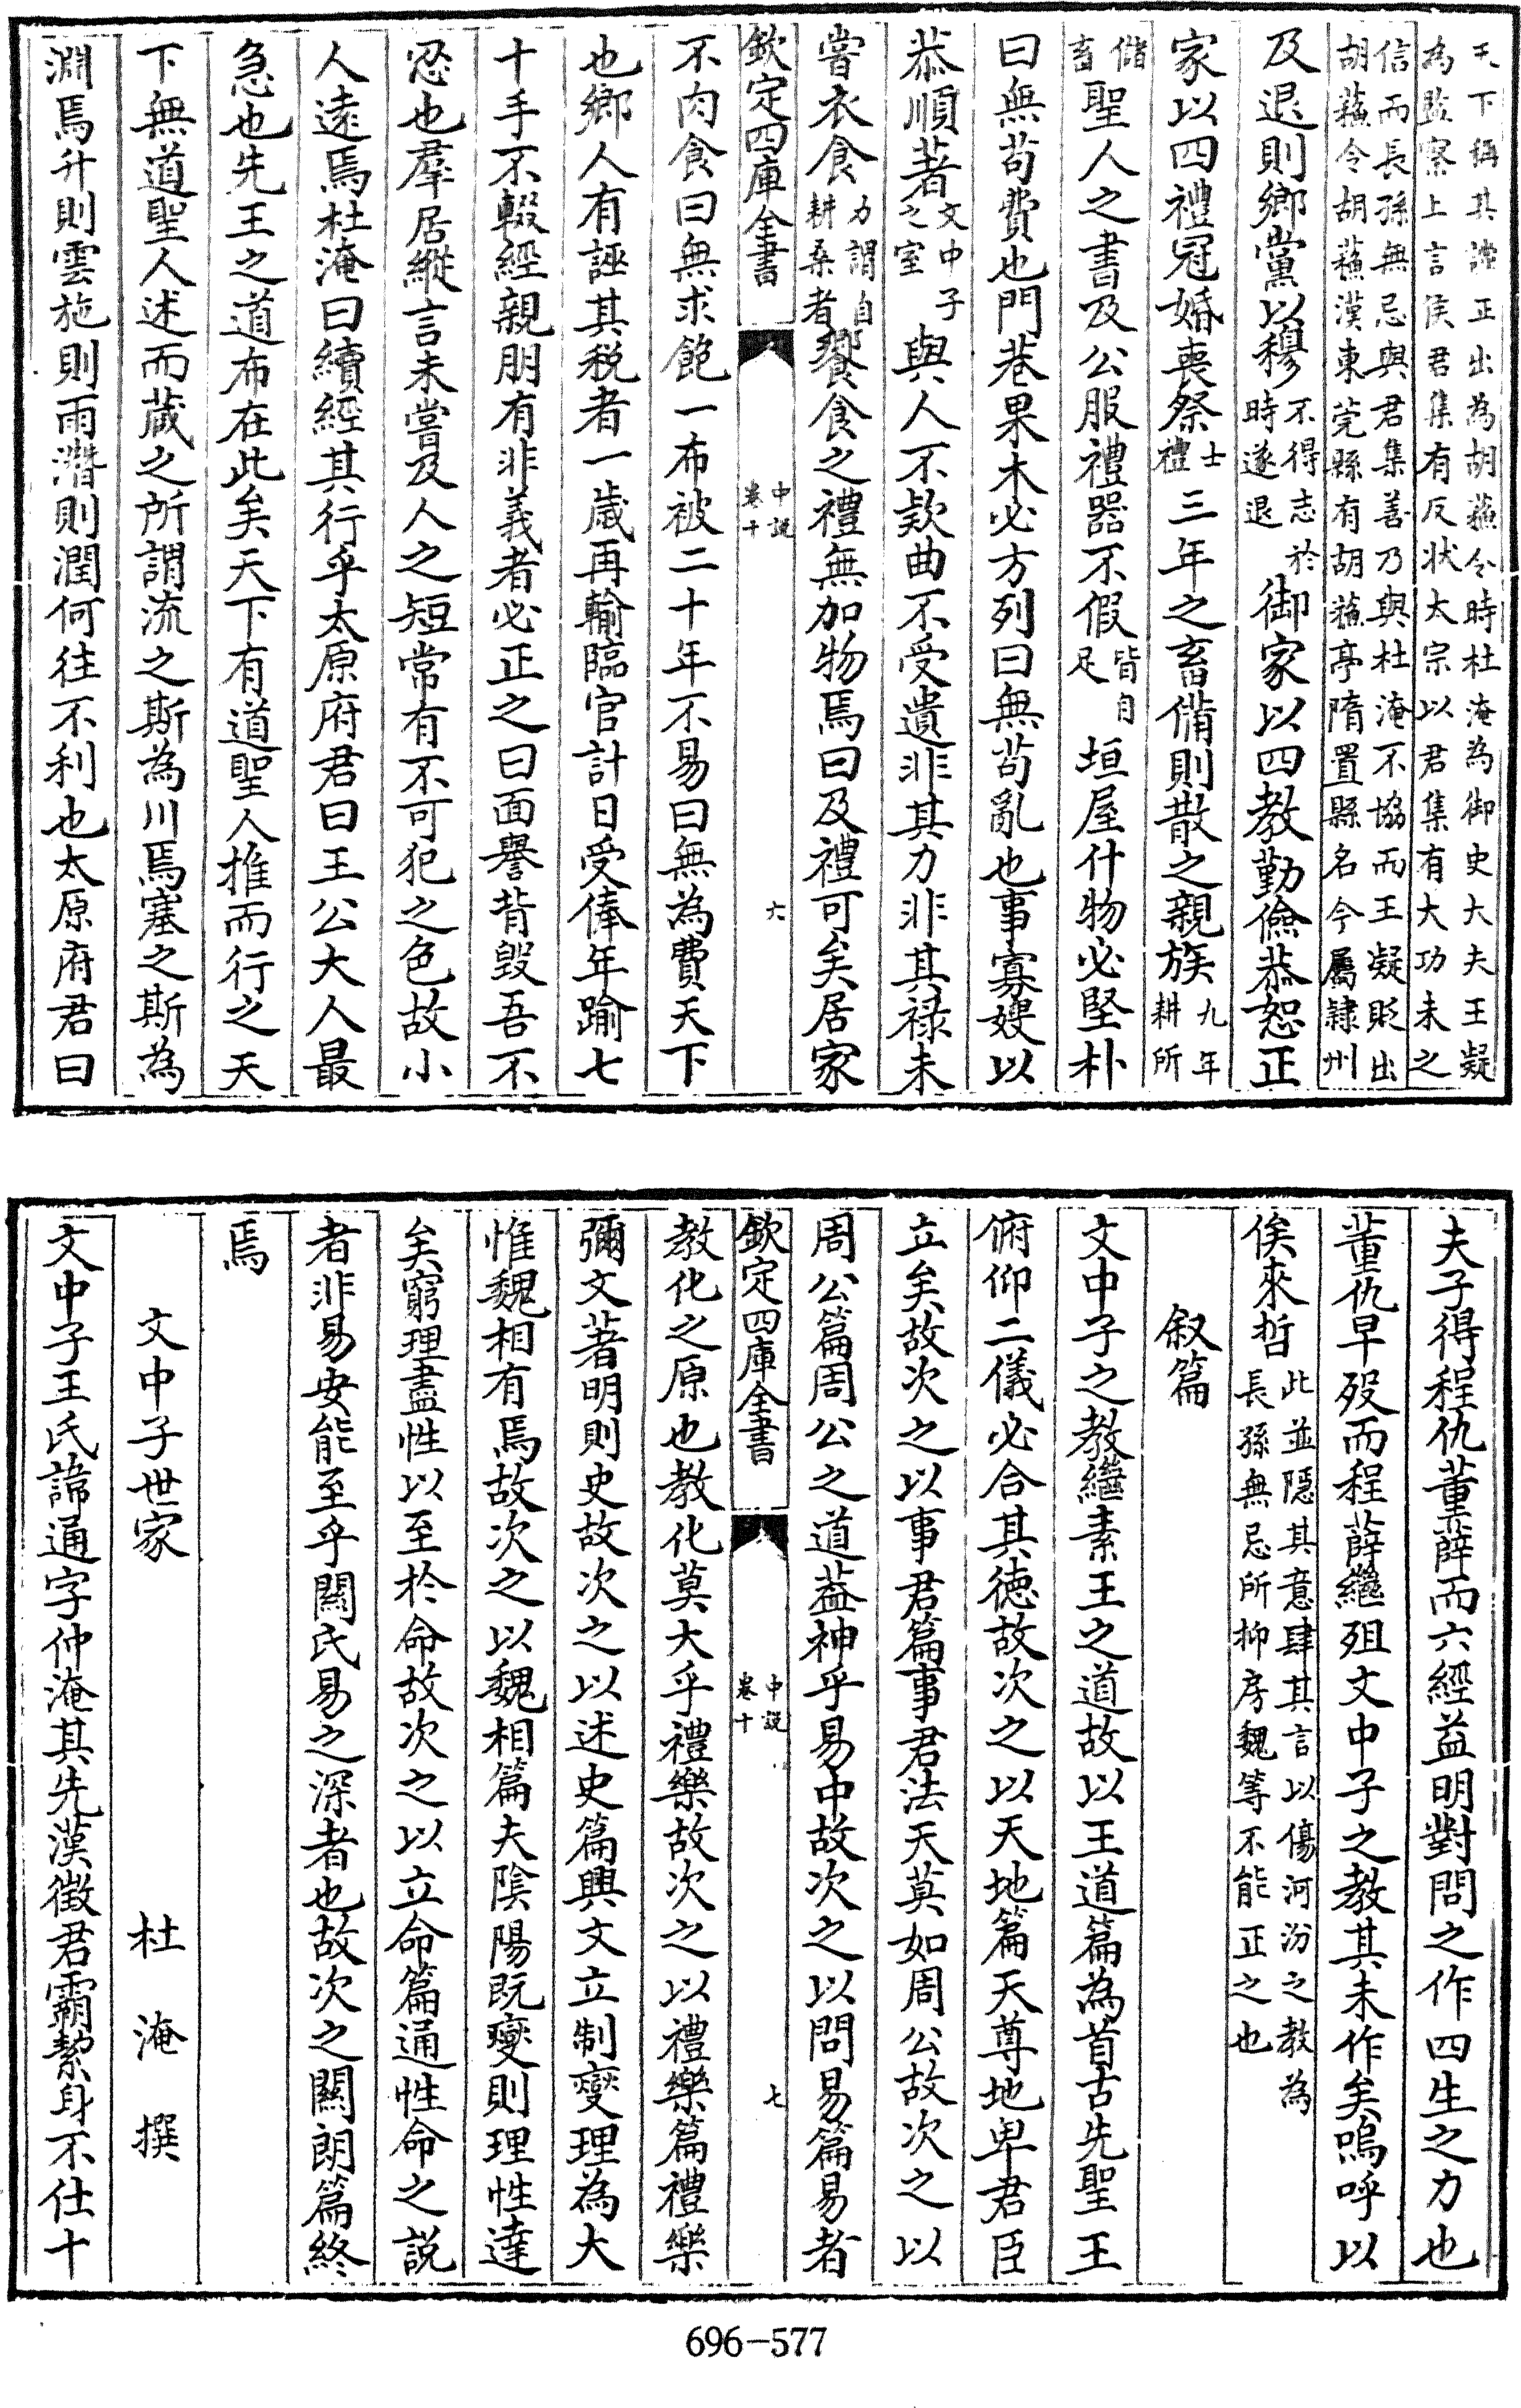 天下稱其讜正出為胡蘇令時杜淹為御史大夫王凝
為監察上言侯君集有反状太宗以君集有大功未之
信而長孫無忌與君集善乃與杜淹不協而王凝貶出
胡蘇令胡蘇漢東莞縣有胡蘇亭隋置縣名今屬隸州
及退則鄉黨以穆不得志於時遂退御家以四教勤儉恭恕正
家以四禮冠婚喪祭士禮三年之畜備則散之親族九年耕所
儲畜聖人之書及公服禮器不假皆自足垣屋什物必堅朴
曰無茍費也門巷果木必方列曰無茍亂也事寡嫂以
恭順著文中子之室與人不款曲不受遺非其力非其禄未
嘗衣食力謂自耕桑者饗食之禮無加物焉曰及禮可矣居家
欽定四庫全書
中説
卷十
六
不肉食曰無求飽一布被二十年不易曰無為費天下
也鄉人有誣其税者一歲再輸臨官計日受俸年踰七
十手不輟經親朋有非義者必正之曰面譽背毀吾不
忍也羣居縱言未嘗及人之短常有不可犯之色故小
人遠焉杜淹曰續經其行乎太原府君曰王公大人最
急也先王之道布在此矣天下有道聖人推而行之天
下無道聖人述而蔵之所謂流之斯為川焉塞之斯為
淵焉升則雲施則雨潛則潤何往不利也太原府君曰
夫子得程仇董薛而六經益明對問之作四生之力也
董仇早歿而程薛繼殂文中子之教其未作矣嗚呼以
俟來哲此並隱其意肆其言以傷河汾之教為長孫無忌所抑房魏等不能正之也
叙篇
文中子之教繼素王之道故以王道篇為首古先聖王
俯仰二儀必合其徳故次之以天地篇天尊地卑君臣
立矣故次之以事君篇事君法天莫如周公故次之以
周公篇周公之道葢神乎易中故次之以問易篇易者
欽定四庫全書
中説
卷十
七
教化之原也教化莫大乎禮樂故次之以禮樂篇禮樂
彌文著明則史故次之以述史篇興文立制變理為大
惟魏相有焉故次之以魏相篇夫陰陽既變則理性達
矣窮理盡性以至於命故次之以立命篇通性命之説
者非易安能至乎關氏易之深者也故次之關朗篇終
焉
文中子世家
杜淹撰
文中子王氏諱通字仲淹其先漢徵君霸絜身不仕十
696-577